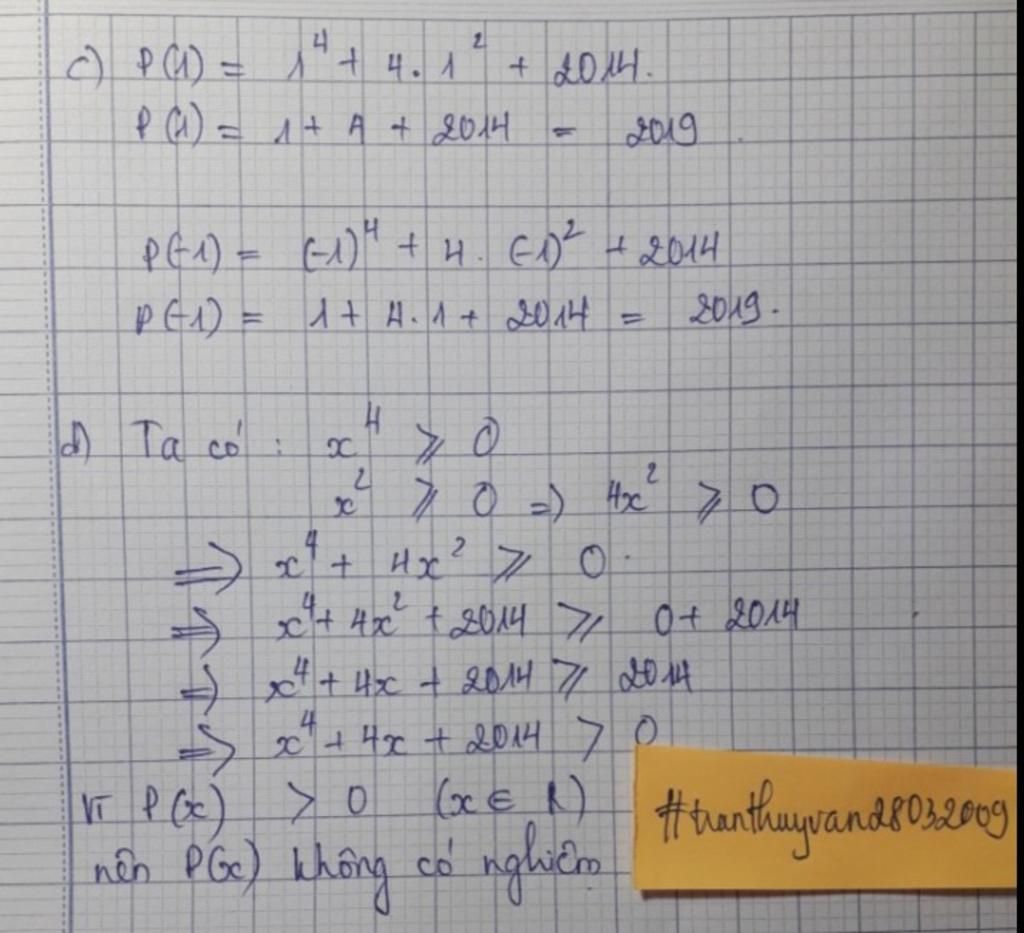 c) P(1) = 1⁴ + 4. 1² + 2014.
P(1) = 1 + 4 + 2014 = 2019.
P(-1) = (-1)⁴ + 4. (-1)² + 2014
P(-1) = 1 + 4.1 + 2014 = 2019.
d) Ta có: x⁴ ⩾ 0
x² ⩾ 0 => 4x² ⩾ 0
=> x⁴ + 4x² ⩾ 0.
=> x⁴ + 4x² + 2014 ⩾ 0 + 2014
=> x⁴ + 4x + 2014 ⩾ 2014
=> x⁴ + 4x + 2014 > 0
Vì P(x) > 0 (x ∈ R)
nên P(x) không có nghiệm
#tranthuyvan28032009